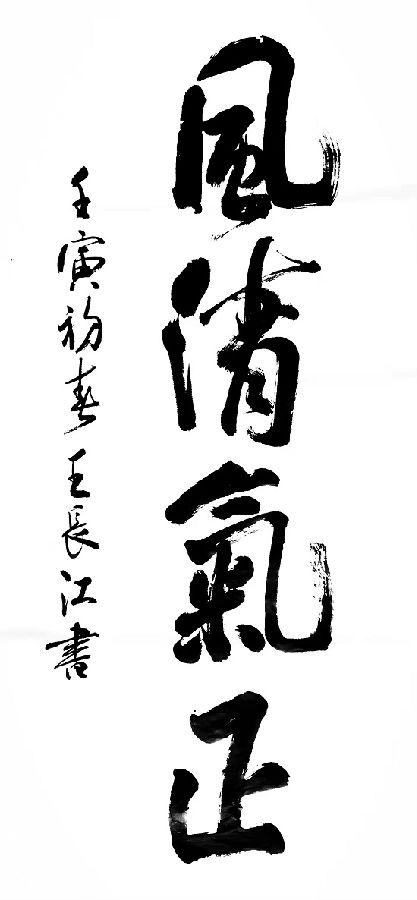 風清氣正
壬寅初春王長江書